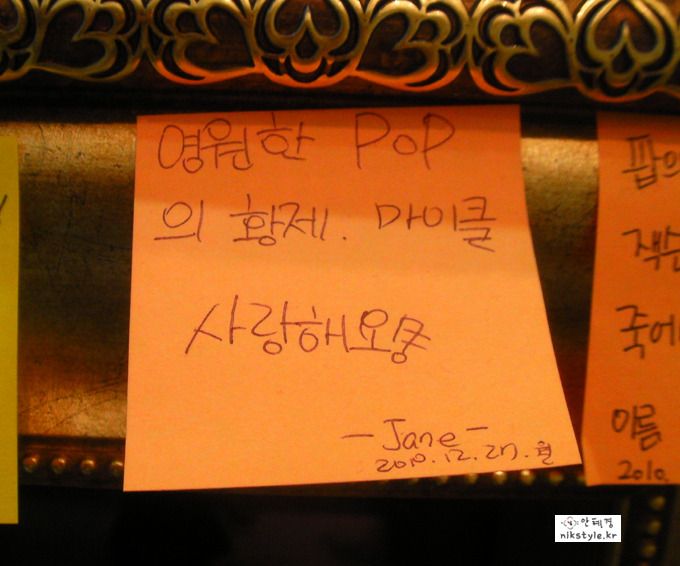 영원한 POP
의 황제. 마이클
사랑해요
- Jane -
2010.12.27.월
팝의
잭슨
죽어
이름
2010.
안혜경
nikstyle.kr